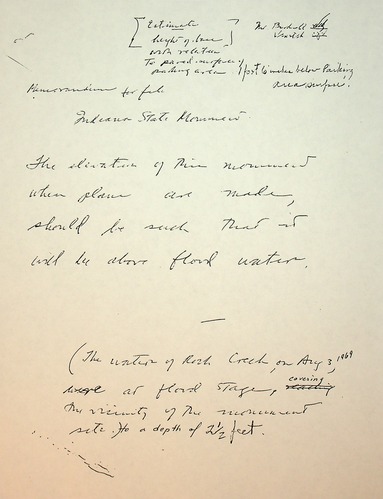 [Estimate
height of base
with relation
to paved surface of
parking area]
1 foot 6 inches below Parking
area surface.
Memorandum for file
Indiana State Monument
The elevation of this monument
when plans are made,
should be such that it
will be above flood water.
(The water of Rock Creek, on Aug 3, 1969
were at flood stage, covering
the vicinity of the monument
site to a depth of 2 1/2 feet.